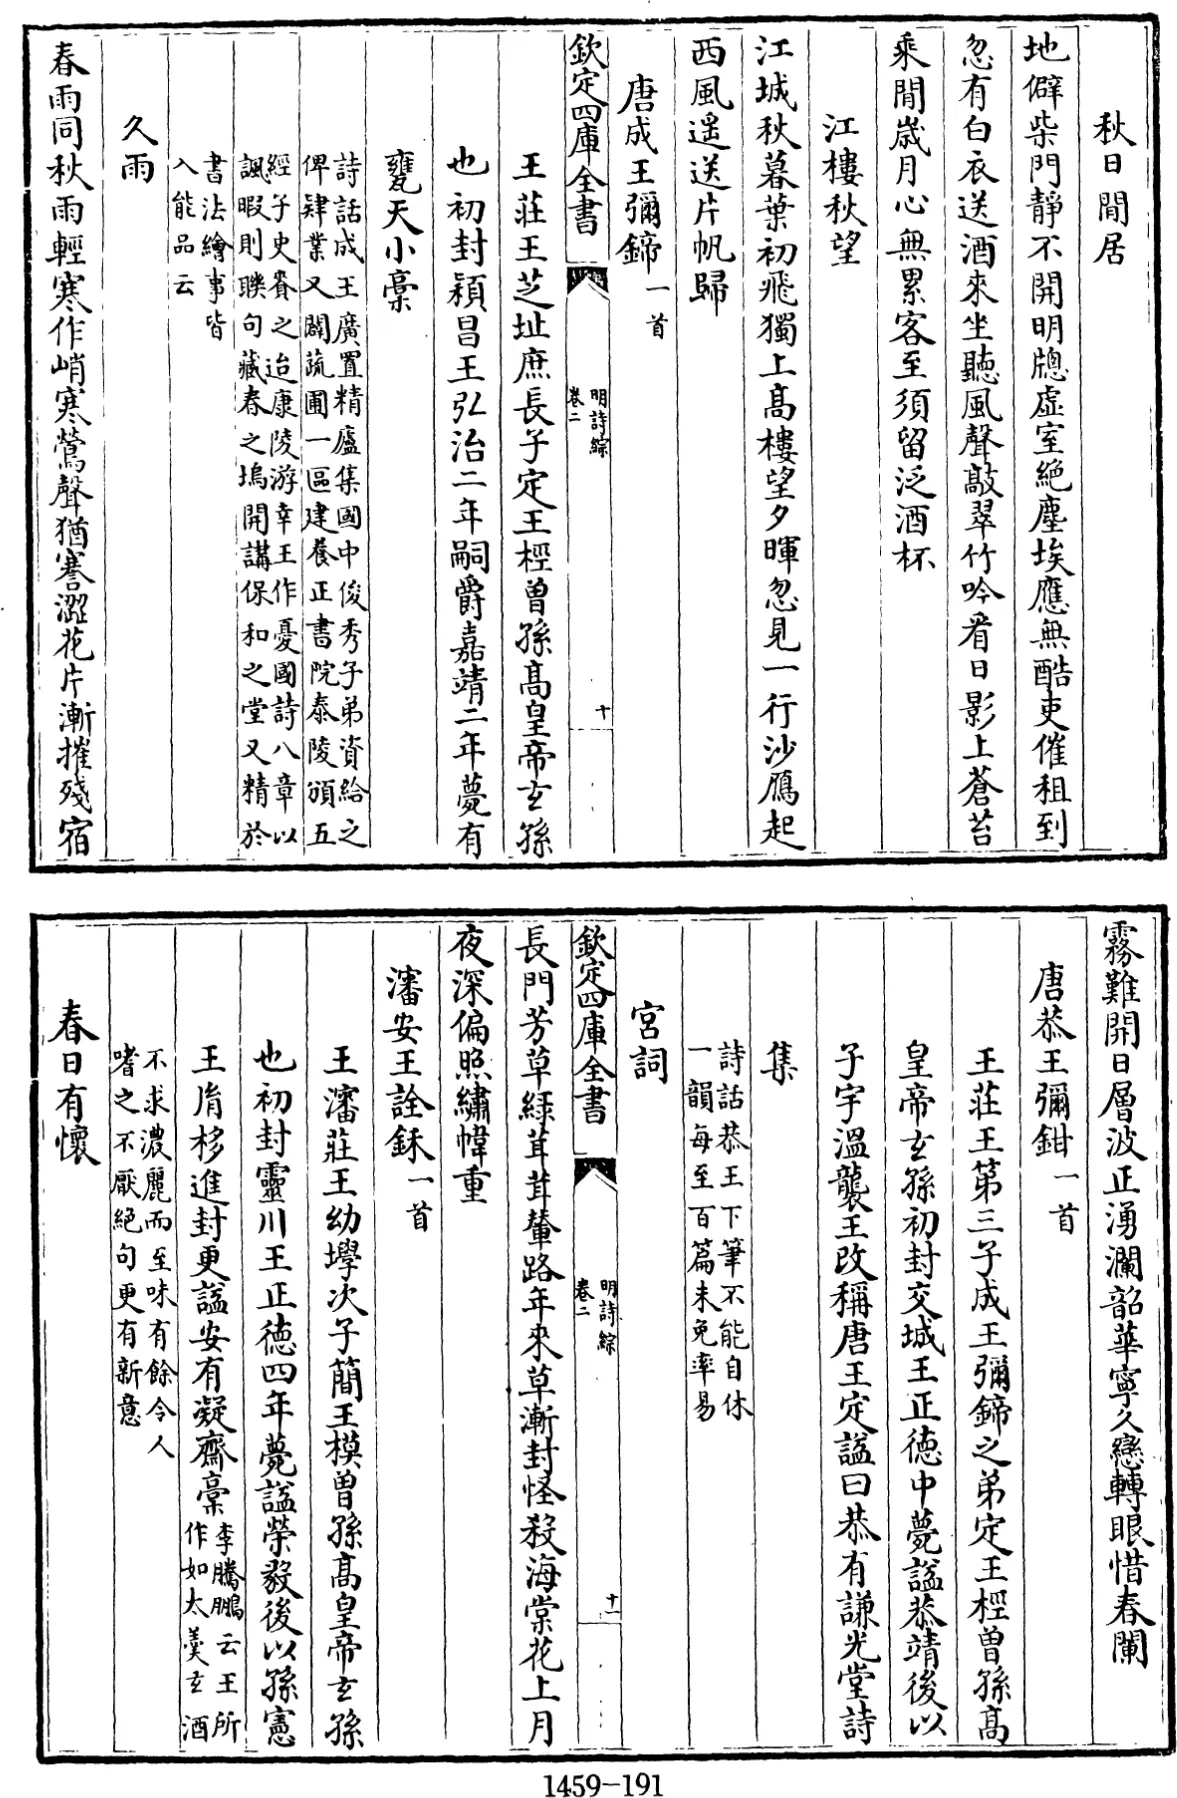 秋日閒居
地僻柴門靜不開明牕虛室絶塵埃應無酷吏催租到
忽有白衣送酒來坐聽風聲敲翠竹吟看日影上蒼苔
乘閒嵗月心無累客至須留泛酒杯
江樓秋望
江城秋暮葉初飛獨上髙樓望夕暉忽見一行沙鴈起
西風遥送片帆歸
唐成王彌鍗一首
欽定四庫全書
明詩綜
卷二
十
王莊王芝址庶長子定王桱曽孫髙皇帝玄孫
也初封潁昌王弘治二年嗣爵嘉靖二年薨有
甕天小稾
詩話成王廣置精廬集國中俊秀子弟資給之
俾肄業又闢蔬圃一區建養正書院泰陵頒五
經子史賚之迨康陵游幸王作憂國詩八章以
諷暇則聨句藏春之塢開講保和之堂又精於
書法繪事皆
入能品云
久雨
春雨同秋雨輕寒作峭寒鶯聲猶謇澀花片漸摧殘宿
霧難開日層波正湧瀾韶華寧久戀轉眼惜春闌
唐恭王彌鉗一首
王莊王第三子成王彌鍗之弟定王桱曽孫髙
皇帝玄孫初封交城王正德中薨諡恭靖後以
子宇溫襲王改稱唐王定諡曰恭有謙光堂詩
集
詩話恭王下筆不能自休
一韻每至百篇未免率易
宮詞
欽定四庫全書
明詩綜
卷二
十一
長門芳草綠茸茸輦路年來草漸封怪殺海棠花上月
夜深偏照繡幃重
瀋安王詮鉌一首
王瀋莊王幼㙾次子簡王模曽孫髙皇帝玄孫
也初封靈川王正德四年薨諡榮毅後以孫憲
王胤栘進封更諡安有凝齋稾李騰鵬云王所
作如太羮玄酒
不求濃麗而至味有餘令人
嗜之不厭絶句更有新意
春日有懷
1459-191